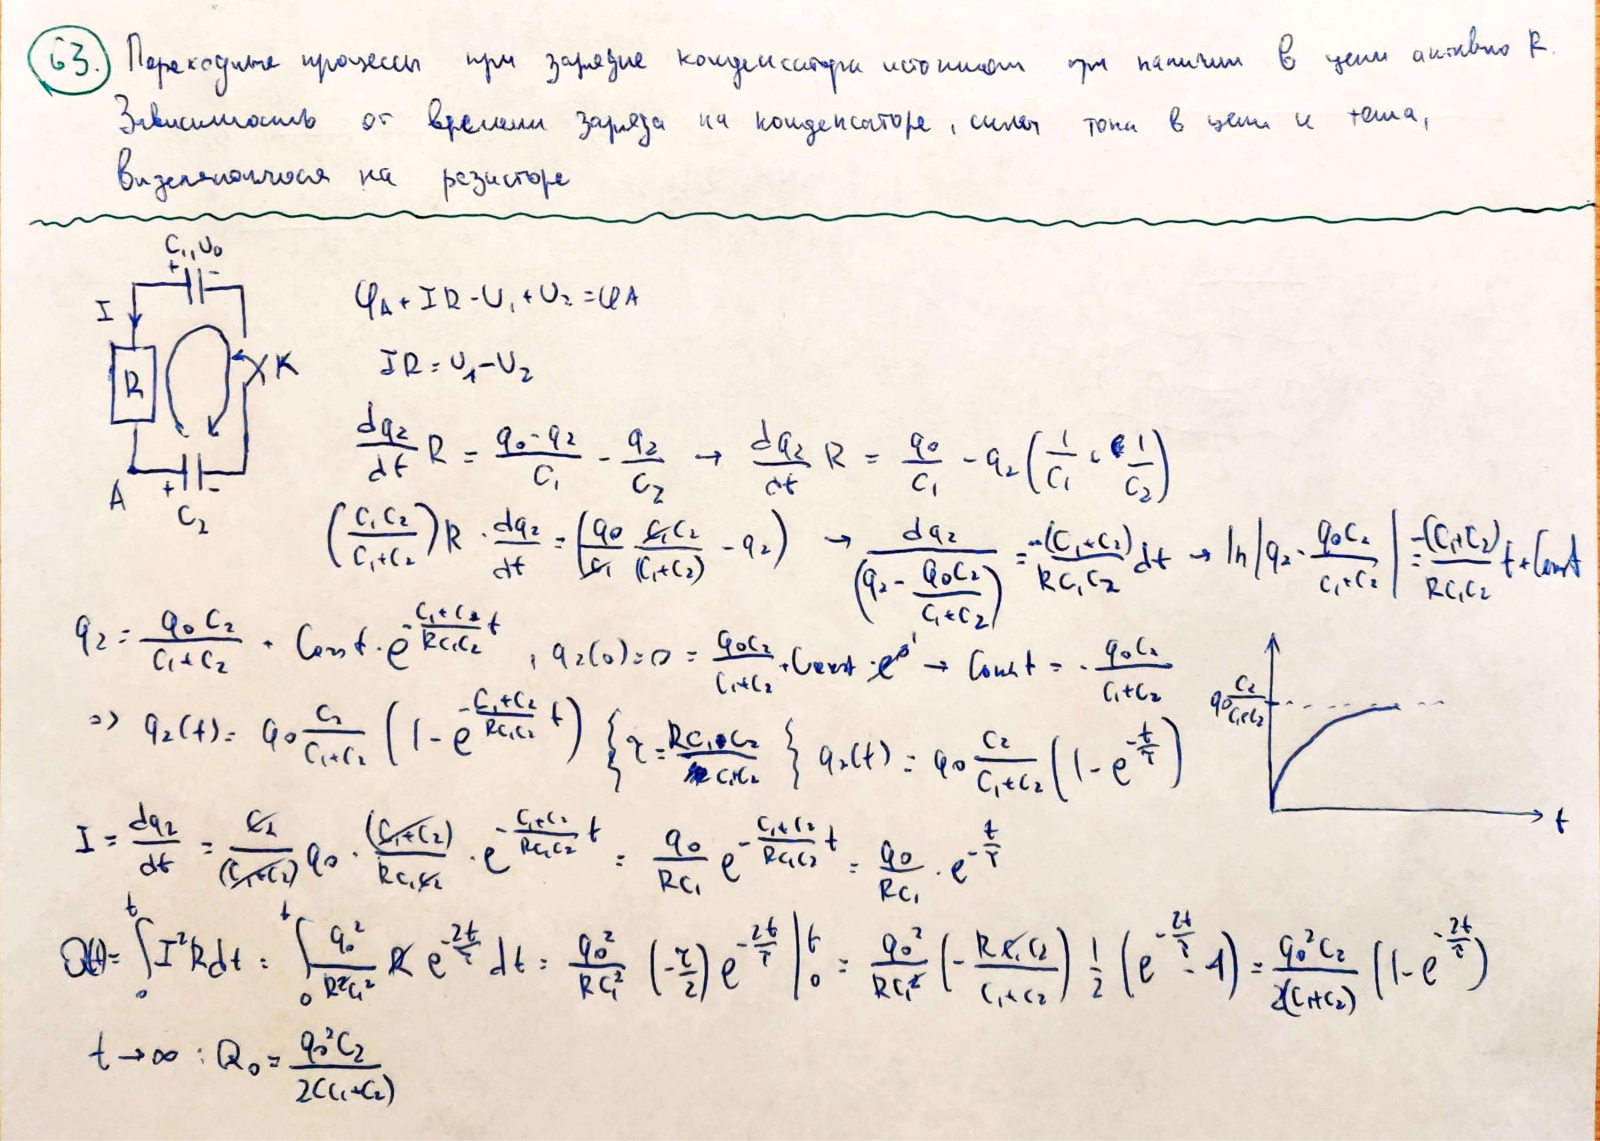 63. Переходные процессы при зарядке конденсатора источником при наличии в цепи активно R.
Зависимость от времени заряда на конденсаторе, силы тока в цепи и тепла,
выделяющегося на резисторе
C₁, U₀
+ -
I
R
K
A
+ -
C₂
φ_A + IR - U₁ + U₂ = φ_A
IR = U₁ - U₂
dq₂/dt R = (q₀ - q₂)/C₁ - q₂/C₂ → dq₂/dt R = q₀/C₁ - q₂(1/C₁ + 1/C₂)
(C₁C₂/(C₁+C₂))R · dq₂/dt = (q₀/C₁ · C₁C₂/(C₁+C₂) - q₂) → dq₂/(q₂ - q₀C₂/(C₁+C₂)) = -(C₁+C₂)/(RC₁C₂) dt → ln|q₂ - q₀C₂/(C₁+C₂)| = -(C₁+C₂)/(RC₁C₂) t + Const
q₂ = q₀C₂/(C₁+C₂) + Const · e^(-(C₁+C₂)/(RC₁C₂) t), q₂(0) = 0 = q₀C₂/(C₁+C₂) + Const · e⁰ → Const = - q₀C₂/(C₁+C₂)
=> q₂(t) = q₀ C₂/(C₁+C₂) (1 - e^(-(C₁+C₂)/(RC₁C₂) t)) {τ = RC₁C₂/(C₁+C₂)} q₂(t) = q₀ C₂/(C₁+C₂) (1 - e^(-t/τ))
q₀ C₂/(C₁+C₂)
t
I = dq₂/dt = C₂/(C₁+C₂) q₀ · (C₁+C₂)/(RC₁C₂) · e^(-(C₁+C₂)/(RC₁C₂) t) = q₀/(RC₁) e^(-(C₁+C₂)/(RC₁C₂) t) = q₀/(RC₁) · e^(-t/τ)
Q(t) = ∫₀ᵗ I²R dt = ∫₀ᵗ q₀²/(R²C₁²) R e^(-2t/τ) dt = q₀²/(RC₁²) (-τ/2) e^(-2t/τ) |₀ᵗ = q₀²/(RC₁²) (-RC₁C₂/(C₁+C₂)) 1/2 (e^(-2t/τ) - 1) = q₀²C₂/(2(C₁+C₂)) (1 - e^(-2t/τ))
t → ∞ : Q₀ = q₀²C₂/(2C(C₁+C₂))